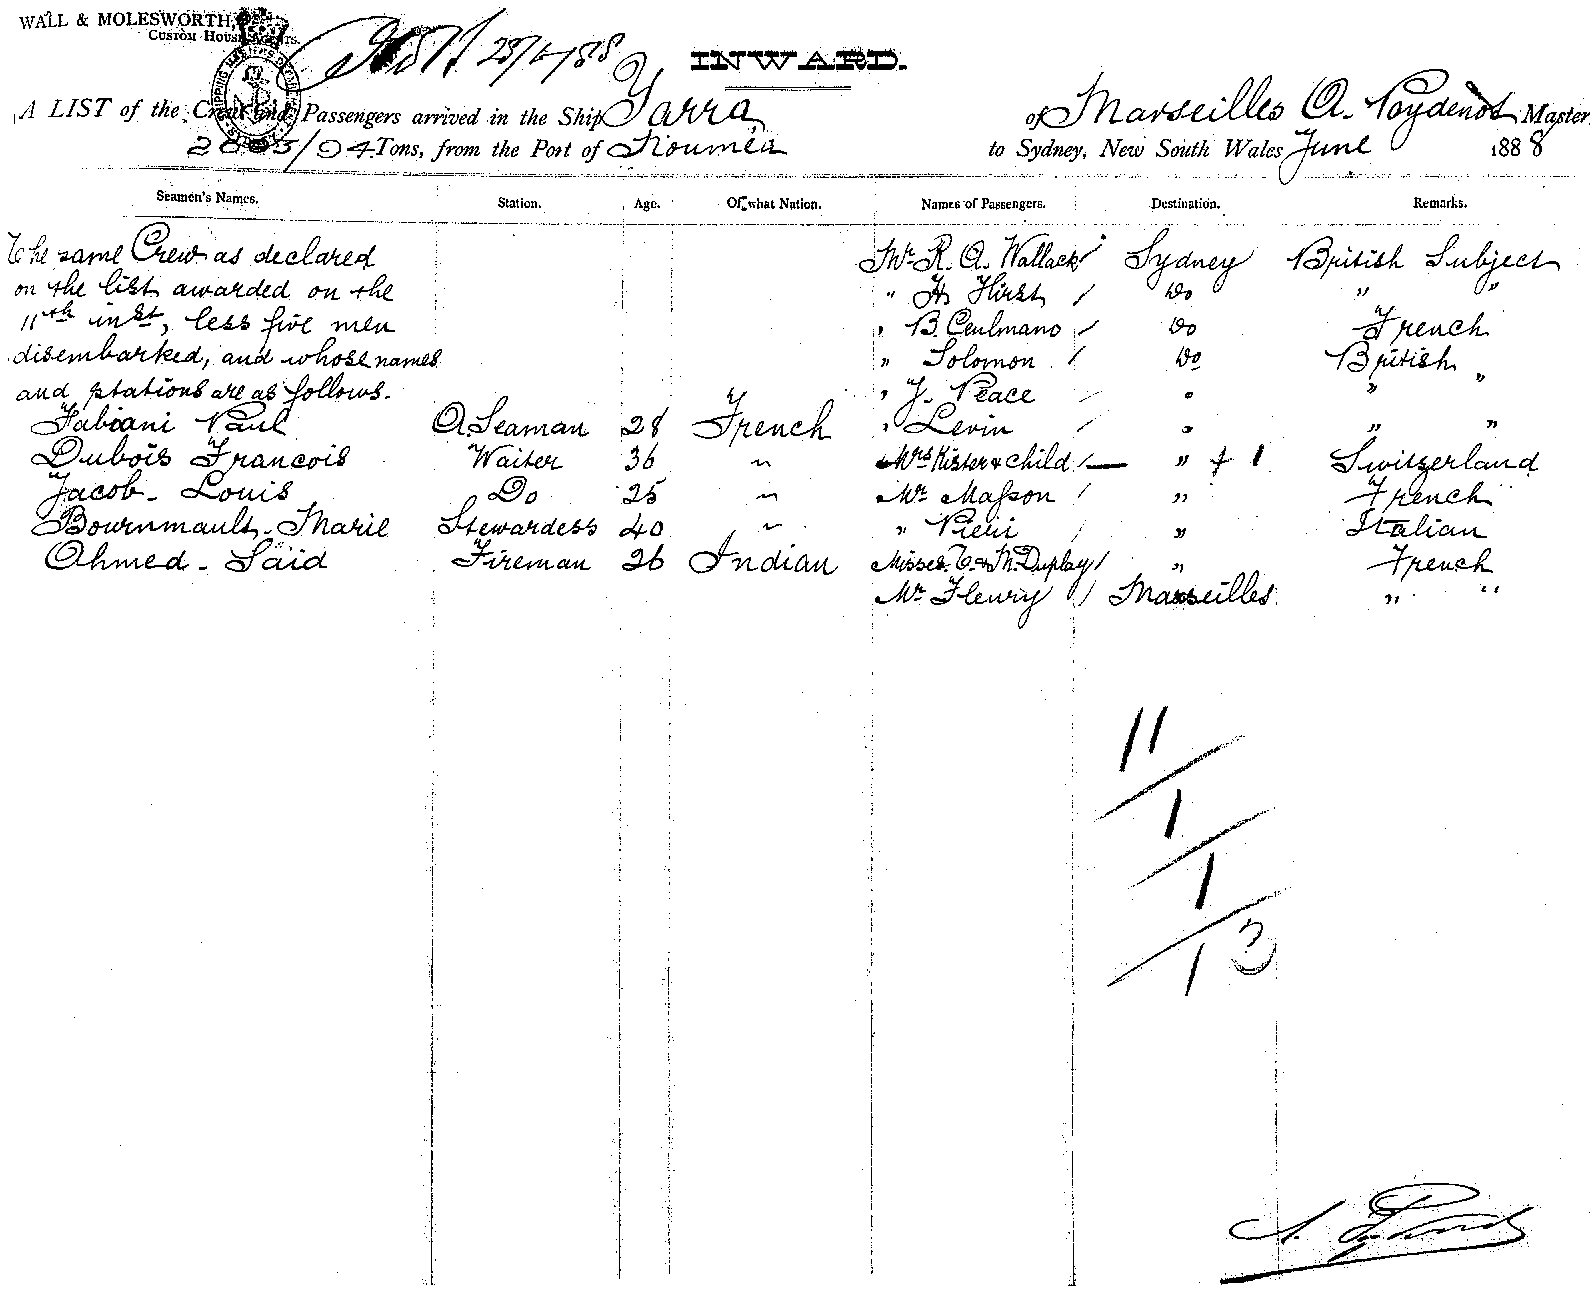 WALL & MOLESWORTH,
CUSTOM HOUSE AGENTS.
28/6/88
INWARD.
A LIST of the Crew and Passengers arrived in the Ship Yarra of Marseilles A. Poydenot Master,
/94 Tons, from the Port of Nouméa to Sydney, New South Wales June 1888
Seamen's Names. Station. Age. Of what Nation. Names of Passengers. Destination. Remarks.
The same Crew as declared Mr R. A. Wallack / Sydney British Subject
on the list awarded on the " H. Hirst / Do " "
11th inst, less five men " B. Ceulmano / Do French
disembarked, and whose names " Solomon / Do British
and stations are as follows. " J. Peace / " " "
Fabiani Paul A. Seaman 28 French " Levin / " " "
Dubois Francois Waiter 36 " Mrs Kister & child / — " + 1 Switzerland
Jacob - Louis Do 25 " Mr Masson / " French
Bournmault - Marie Stewardess 40 " " Pieri / " Italian
Ahmed - Saïd Fireman 26 Indian Misses C. & M. Duplay / " French
Mr Fleury / Marseilles " "
11
1
1
13
A. Poydenot